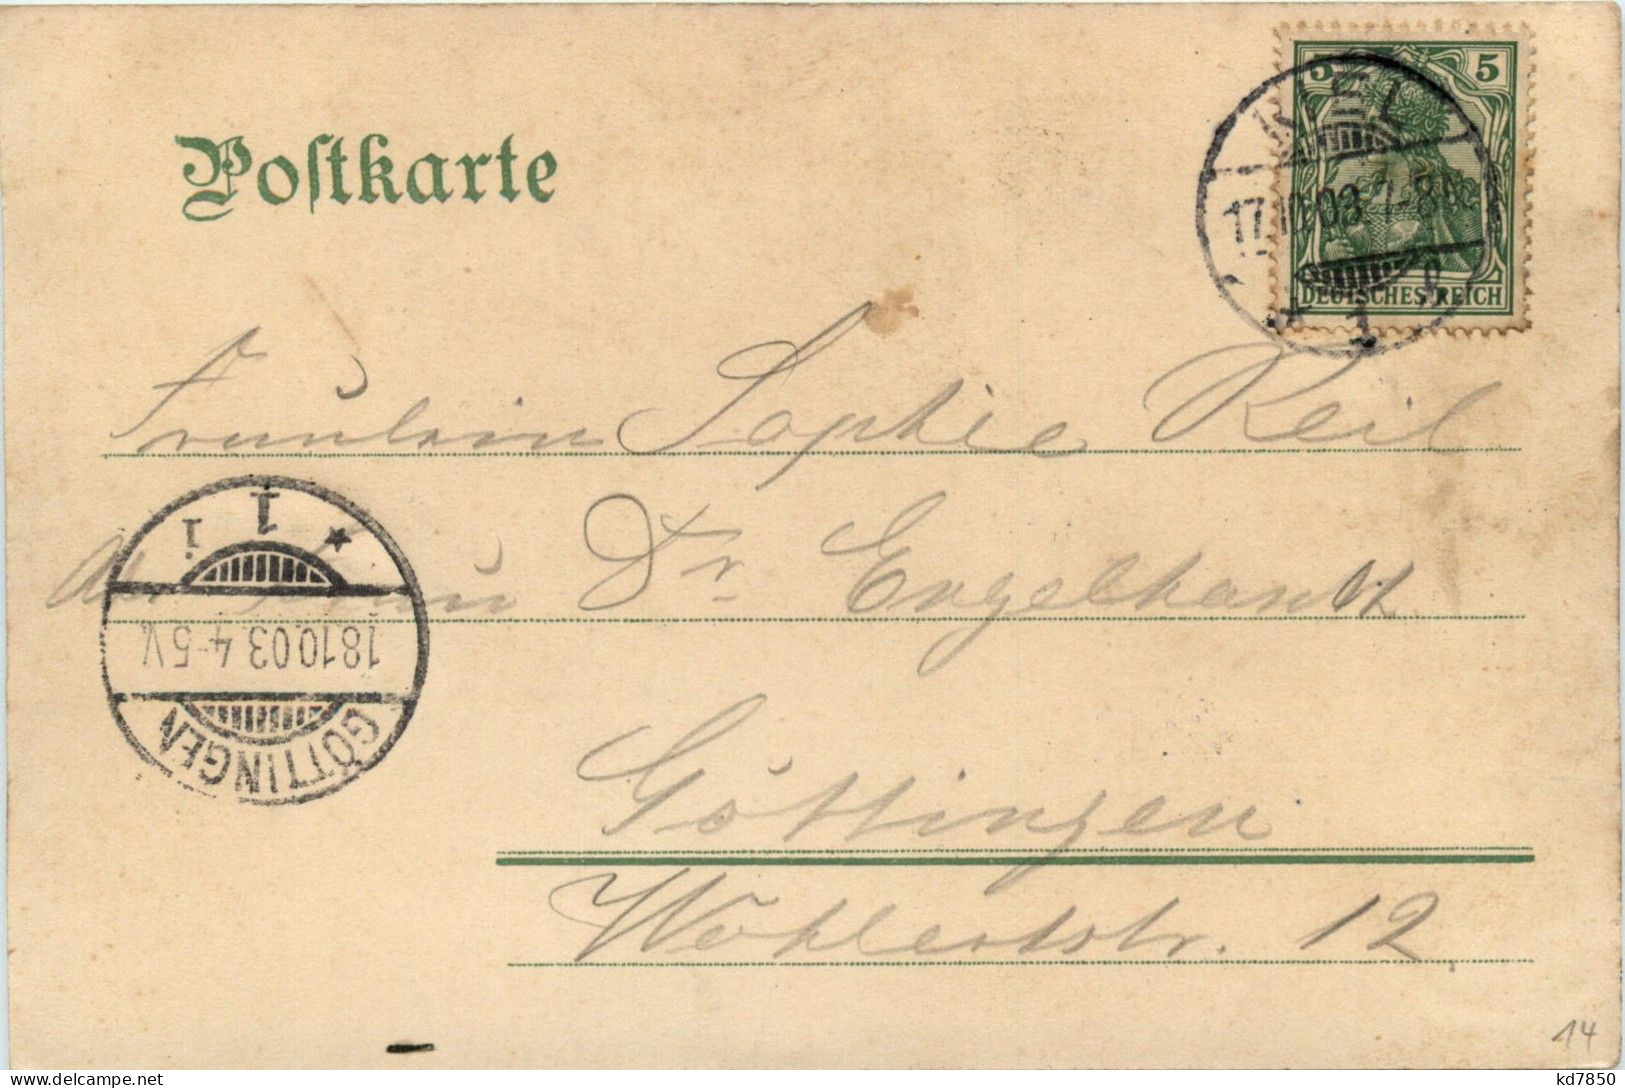 Postkarte
5 5
KIEL
17.10.03 7-8
DEUTSCHES REICH
1
Fräulein Sophie Keil
Frau Dr. Engelhardt
1 i
18.10.03. 4-5 V.
GÖTTINGEN
Göttingen
Wöhlerstr. 12
14
kd7850